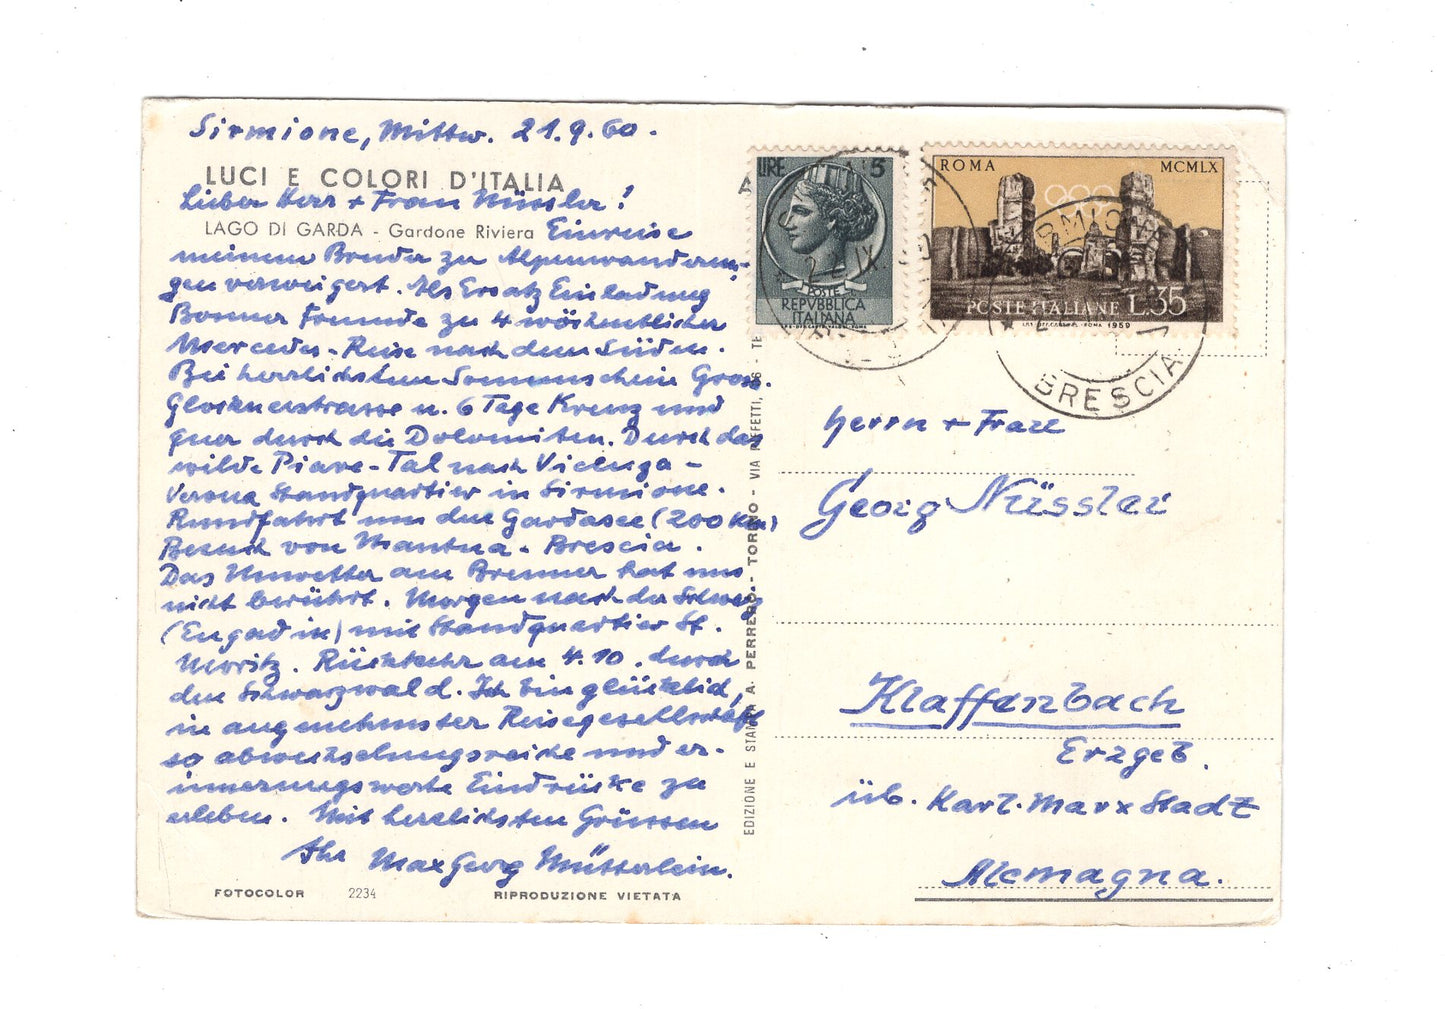 Sirmione, Mittw. 21.9.60.
LUCI E COLORI D'ITALIA
Lieber Herr + Frau Nüssler!
LAGO DI GARDA - Gardone Riviera
Einreise
meinem Bruder zu Alpenwanderun-
gen verweigert. Als Ersatz Einladung
Bonner Freunde zu 4 wöchentlicher
Mercedes-Reise nach dem Süden.
Bei herrlichstem Sonnenschein Gross-
Glocknerstrasse u. 6 Tage Kreuz und
quer durch die Dolomiten. Durch das
wilde Piave-Tal nach Vicenza -
Verona Standquartier in Sirmione.
Rundfahrt um den Gardasee (200 km)
Besuch von Mantua - Brescia.
Das Unwetter am Brenner hat uns
nicht berührt. Morgen nach der Schweiz
(Engadin) mit Standquartier St.
Moritz. Rückkehr am 4.10. durch
den Schwarzwald. Ich bin glücklich,
in angenehmster Reisegesellschaft
so abwechslungsreiche und er-
innerungswerte Eindrücke zu
erleben. Mit herzlichsten Grüssen
Ihr Max Georg Mütterlein.
FOTOCOLOR 2234 RIPRODUZIONE VIETATA
EDIZIONE E STAMPA A. PERRERO - TORINO - VIA
LIRE 5
POSTE
REPVBBLICA
ITALIANA
ROMA MCMLX
POSTE ITALIANE L.35
1959
BRESCIA
Herrn + Frau
Georg Nüssler
Klaffenbach
Erzgeb.
üb. Karl-Marx Stadt
Alemagna.